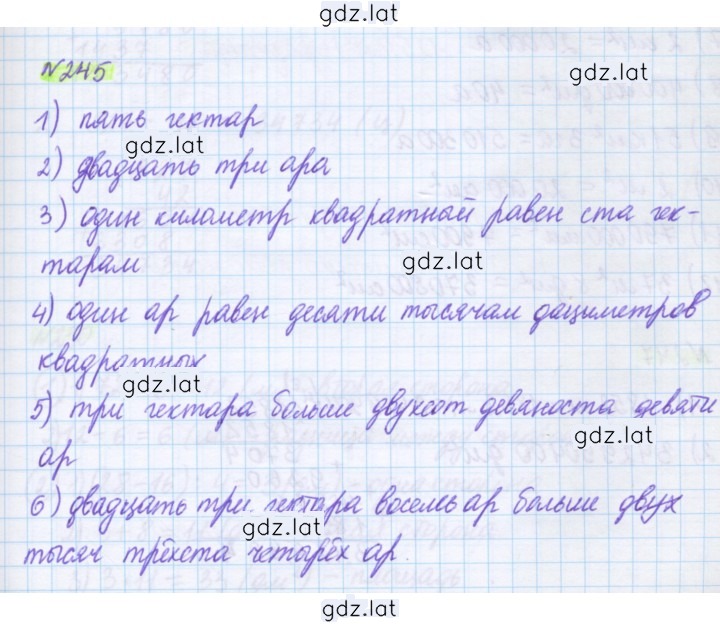 gdz.lat
№245
gdz.lat
1) пять гектар
gdz.lat
2) двадцать три ара
3) один километр квадратный равен ста гек-
тарам
gdz.lat
4) один ар равен десяти тысячам дециметров
квадратных
gdz.lat
5) три гектара больше двухсот девяноста девяти
ар
gdz.lat
6) двадцать три гектара восемь ар больше двух
gdz.lat
тысяч трёхста четырёх ар.
gdz.lat